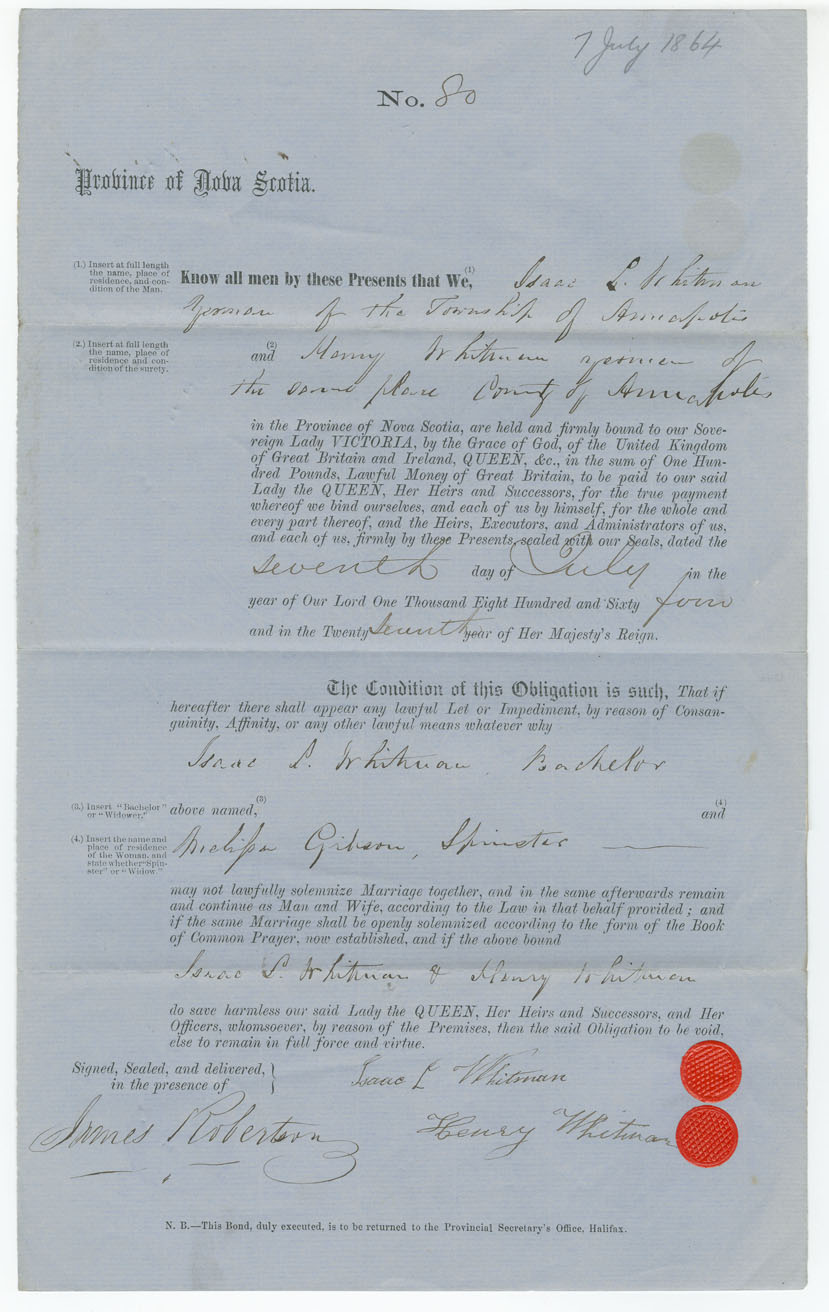 7 July 1864
No. 80
Province of Nova Scotia.
(1.) Insert at full length
the name, place of
residence, and con-
dition of the Man.
Know all men by these Presents that We, (1) Isaac L. Whitman
yeoman of the Township of Annapolis
(2.) Insert at full length
the name, place of
residence and con-
dition of the surety.
and (2) Henry Whitman yeoman of
the same place County of Annapolis
in the Province of Nova Scotia, are held and firmly bound to our Sove-
reign Lady VICTORIA, by the Grace of God, of the United Kingdom
of Great Britain and Ireland, QUEEN, &c., in the sum of One Hun-
dred Pounds, Lawful Money of Great Britain, to be paid to our said
Lady the QUEEN, Her Heirs and Successors, for the true payment
whereof we bind ourselves, and each of us by himself, for the whole and
every part thereof, and the Heirs, Executors, and Administrators of us,
and each of us, firmly by these Presents, sealed with our Seals, dated the
seventh day of July in the
year of Our Lord One Thousand Eight Hundred and Sixty four
and in the Twenty seventh year of Her Majesty's Reign.
The Condition of this Obligation is such, That if
hereafter there shall appear any lawful Let or Impediment, by reason of Consan-
guinity, Affinity, or any other lawful means whatever why
Isaac L. Whitman Bachelor
(3.) Insert "Bachelor"
or "Widower."
above named, (3) and (4)
(4.) Insert the name and
place of residence
of the Woman, and
state whether "Spin-
ster" or "Widow."
Melissa Gibson, Spinster
may not lawfully solemnize Marriage together, and in the same afterwards remain
and continue as Man and Wife, according to the Law in that behalf provided; and
if the same Marriage shall be openly solemnized according to the form of the Book
of Common Prayer, now established, and if the above bound
Isaac L. Whitman & Henry Whitman
do save harmless our said Lady the QUEEN, Her Heirs and Successors, and Her
Officers, whomsoever, by reason of the Premises, then the said Obligation to be void,
else to remain in full force and virtue.
Signed, Sealed, and delivered,
in the presence of }
Isaac L Whitman
James Robertson
Henry Whitman
N. B.—This Bond, duly executed, is to be returned to the Provincial Secretary's Office, Halifax.